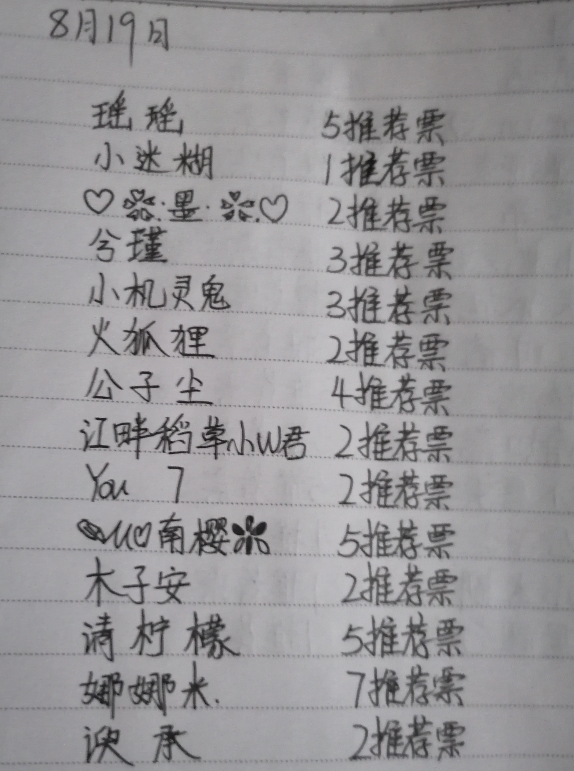 8月19日
瑶瑶 5推荐票
小迷糊 1推荐票
♡·墨·♡ 2推荐票
兮瑾 3推荐票
小机灵鬼 3推荐票
火狐狸 2推荐票
公子尘 4推荐票
江畔稻草小W君 2推荐票
You 7 2推荐票
✎M♡南樱 5推荐票
木子安 2推荐票
请柠檬 5推荐票
娜娜米. 7推荐票
谀承 2推荐票